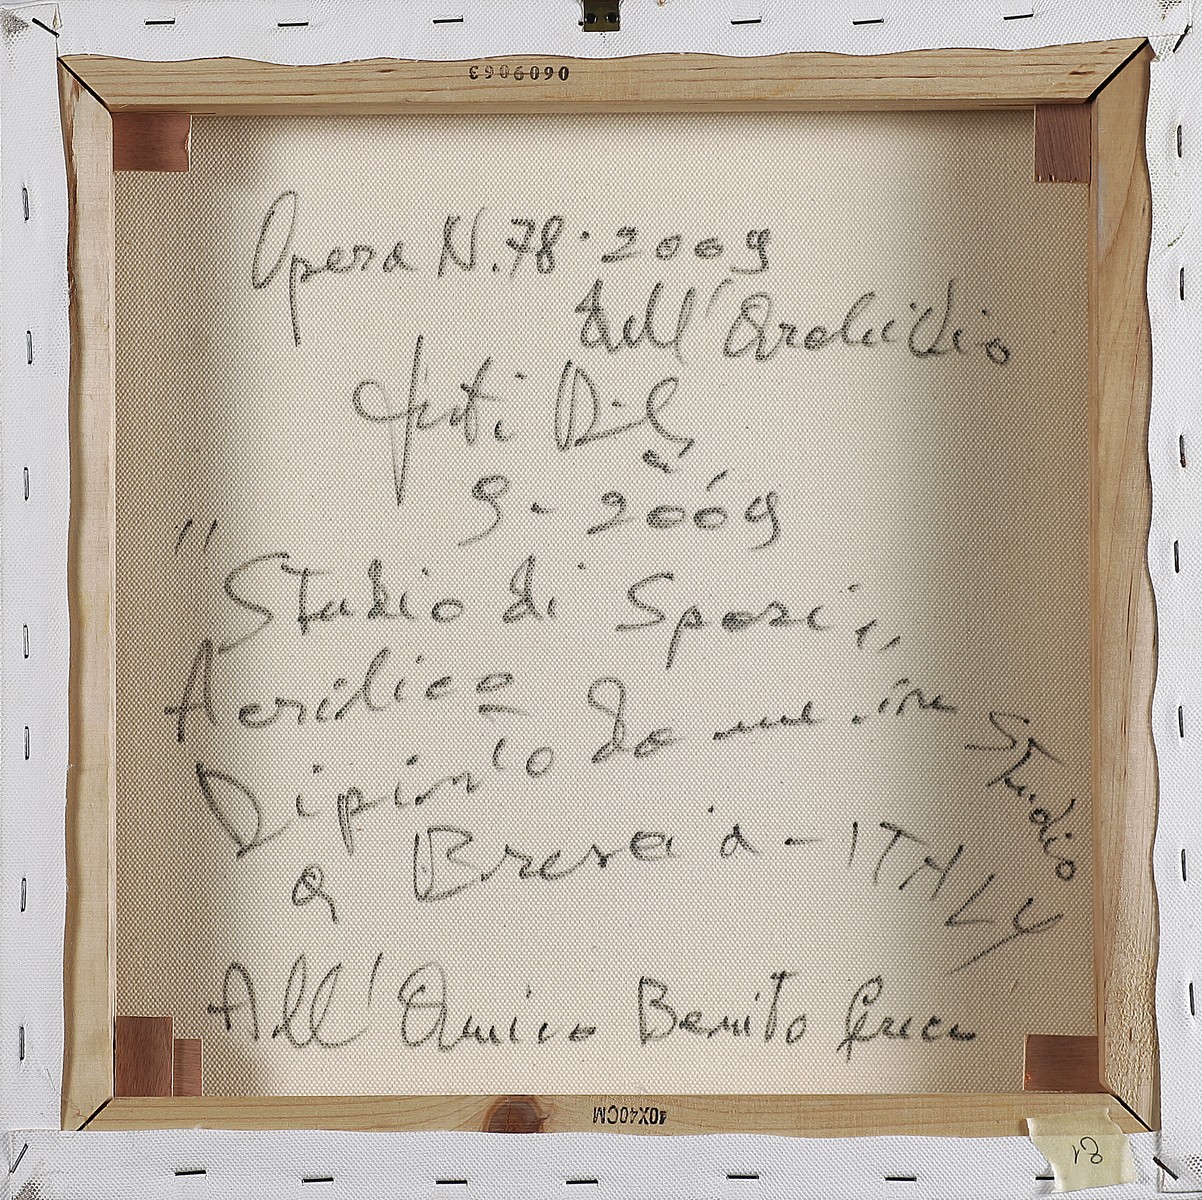 0609063
Opera N.78·2009
dell'Archivio
9-2009
"Studio di Sposi"
Acrilico
Dipinto da me in Studio
a Brescia - ITALY
All'Amico Benito Greco
40X40CM